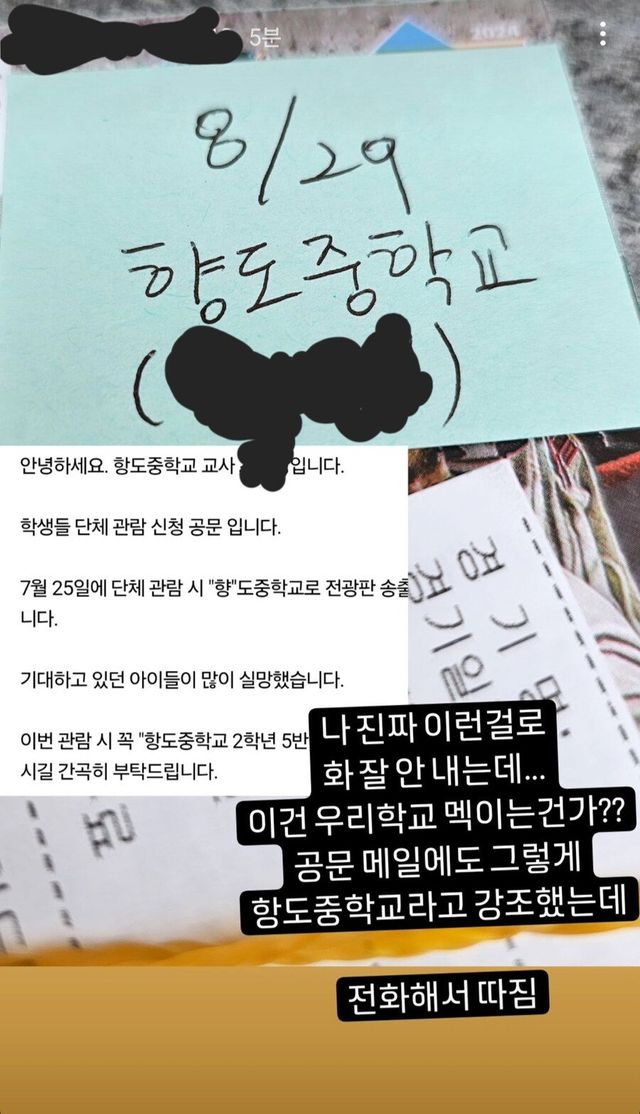 5분
2024
8/29
향도중학교
( )
안녕하세요. 항도중학교 교사 입니다.
학생들 단체 관람 신청 공문 입니다.
7월 25일에 단체 관람 시 "향"도중학교로 전광판 송출
니다.
기대하고 있던 아이들이 많이 실망했습니다.
이번 관람 시 꼭 "항도중학교 2학년 5반
시길 간곡히 부탁드립니다.
경기명:
경기일
료
나 진짜 이런걸로
화 잘 안 내는데...
이건 우리학교 멕이는건가??
공문 메일에도 그렇게
항도중학교라고 강조했는데
전화해서 따짐